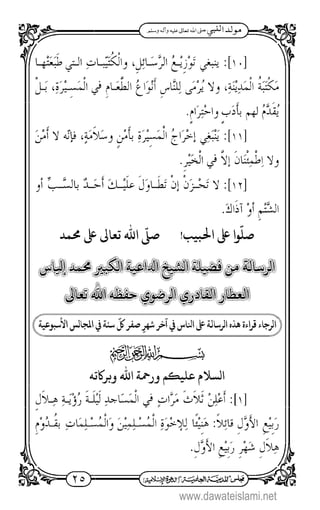 مولد النبي صلى الله تعالى عليه وآله وسلم
[١٠]: ينبغي تَوْزِيْعُ الرَّسائِلِ، والْكُتَيِّبَاتِ الـتي طَبَعَتْهـا
مَكْتَبَةُ الْمَدِيْنَةِ، ولا يُرْمَى لِلنَّاسِ أَنْوَاعُ الطَّعَامِ في الْمَسِـيْرَةِ، بَـلْ
يُقَدَّمُ لهم بأَدَبٍ واحْتِرَامٍ.
[١١]: يَنْبَغِيْ إِخْرَاجُ الْمَسِيْرَةِ بأَمْنٍ وسَلَامَةٍ، فإنّه لا أَمْنَ
ولا اِطْمِئْنَانَ إلَّا في الْخَيْرِ.
[١٢]: لا تَحْـزَنْ إنْ تَطَـاوَلَ عَلَيْـكَ أَحَـدٌ بالسَّـبِّ أو
الشَّتْمِ أوْ آذَاكَ.
صلّوا على الحبيب! صلّى الله تعالى على محمد
الرسالة من فضيلة الشيخ الداعية الكبير محمد إلياس
العطار القادري الرضوي حفظه الله تعالى
الرجاء قراءة هذه الرسالة على الناس في آخر شهر صفر كلّ سنة في المجالس الأسبوعية
بسم الله الرحمن الرحيم
السلام عليكم ورحمة الله وبركاته
[١]: أَعْلِنْ ثَلَاثَ مَرَّاتٍ في الْمَسَـاجِدِ لَيْلَـةَ رُؤْيَـةِ هِـلَالِ
رَبِيْعِ الْأَوَّلِ قائِلاً: هَنِيْئًا لِلإِخْوَةِ الْمُسْـلِمِيْنَ وَالْمُسْـلِمَاتِ بقُـدُوْمِ
هِلَالِ شَهْرِ رَبِيْعِ الْأَوَّلِ.
مجلس المدينة العلمية (الدعوة الإسلامية)
٢٥
www.dawateislami.net